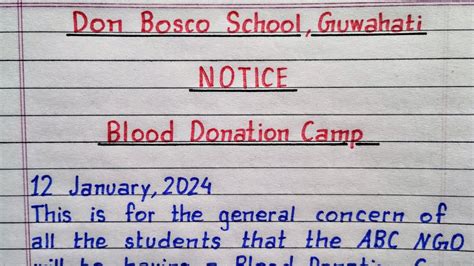 Don Bosco School, Guwahati
NOTICE
Blood Donation Camp
12 January, 2024
This is for the general concern of
all the students that the ABC NGO
will be having a Blood Donation C